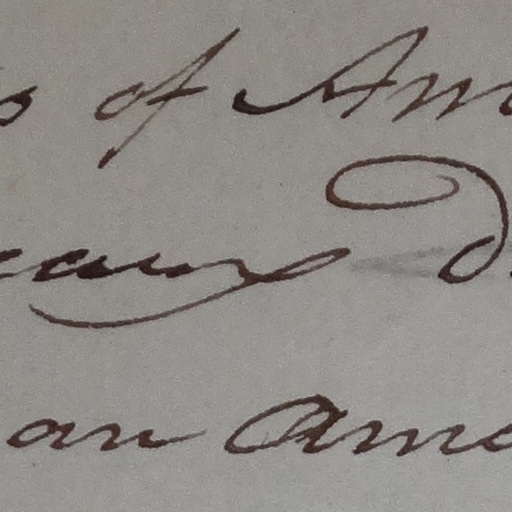 s of Am
eans d
an Ame